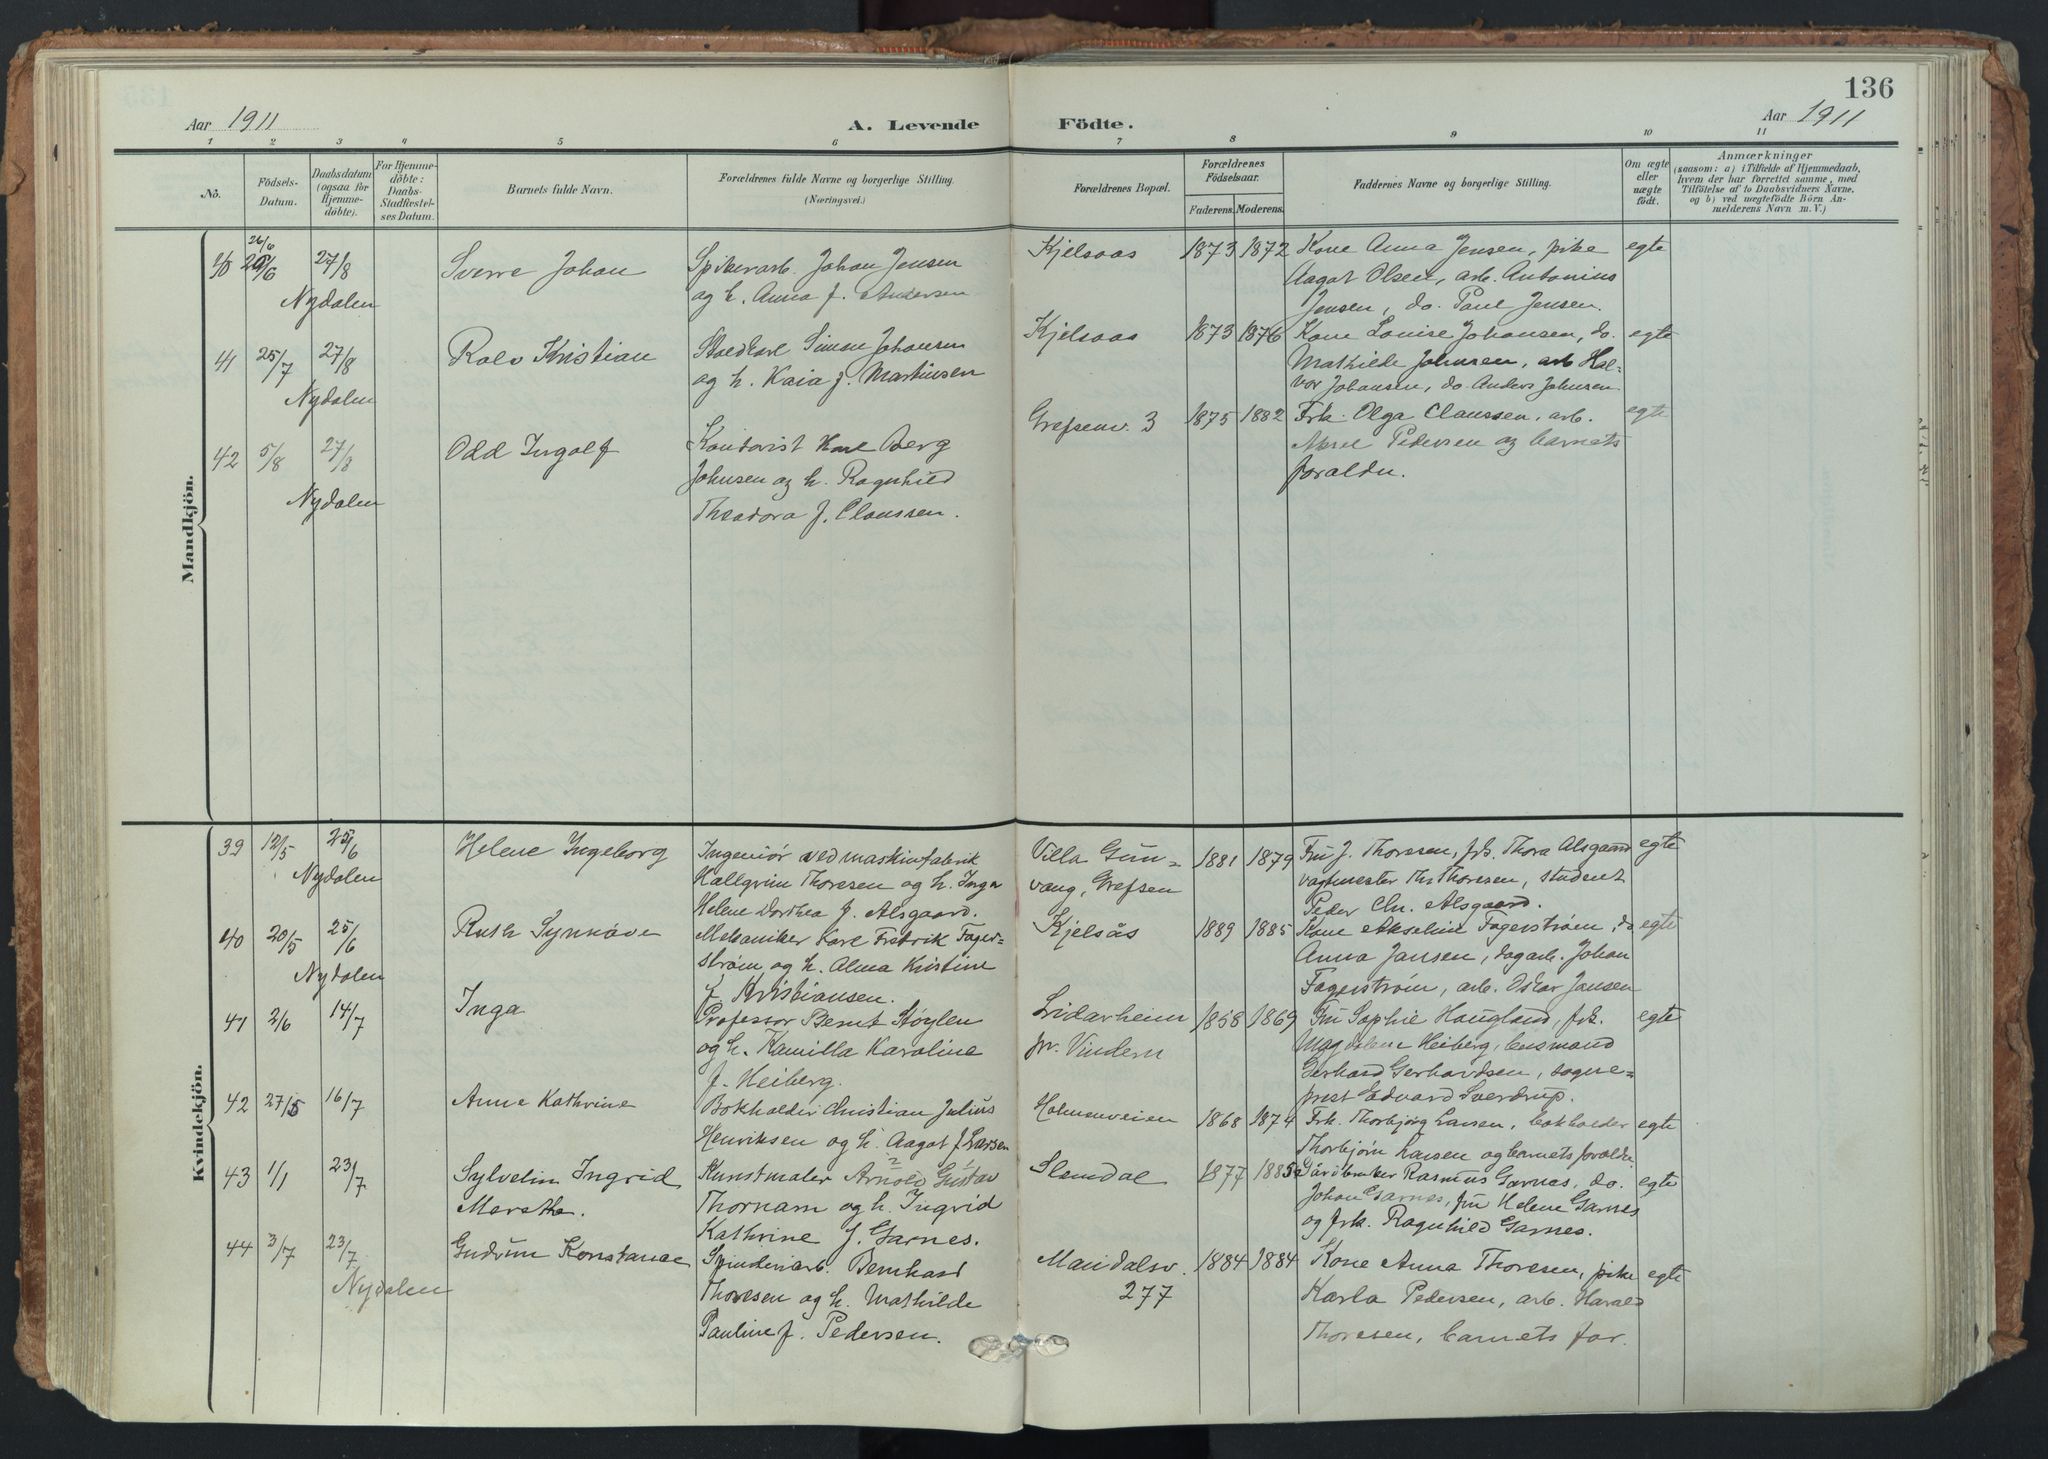 136
Aar 1911
A. Levende Födte.
Aar 1911
1 2 3 4 5 6 7 8 9 10 11
No.
Födsels-
Datum.
Daabsdatum
(ogsaa for
Hjemme-
döbte).
For Hjemme-
döbte:
Daabs-
Stadfestel-
ses Datum.
Barnets fulde Navn.
Forældrenes fulde Navne og borgerlige Stilling.
(Næringsvei.)
Forældrenes Bopæl.
Forældrenes
Födselsaar.
Faderens. Moderens.
Faddernes Navne og borgerlige Stilling.
Om ægte
eller
uægte
födt.
Anmærkninger
(saasom: a) i Tilfælde af Hjemmedaab,
hvem der har forrettet samme, med
Tilföielse af to Daabsvidners Navne.
og b) ved uægtefödte Börn An-
melderens Navn m. V.)
Mandkjön.
40 26/6 27/8
Nydalen
Sverre Johan
Spikerarb. Johan Jensen
og h. Anna f. Andersen
Kjelsaas
1873 1872
Kone Anna Jensen, pike
Aagot Olsen, arb. Antonius
Jensen, do. Paul Jensen.
egte
41 25/7 27/8
Nydalen
Rolv Kristian
Staldkarl Simon Johansen
og h. Kaia f. Martinsen
Kjelsaas
1873 1876
Kone Louise Johansen, do.
Mathilde Johnsen, arb Hal-
vor Johansen, do. Anders Johnsen.
egte
42 5/8 27/8
Nydalen
Odd Ingolf
Kontorist Karl Berg
Johnsen og h. Ragnhild
Theodora f. Claussen.
Grefsenv. 3
1875 1882
Frk. Olga Claussen, arb.
Aksel Pedersen og barnets
foraldre.
egte
Kvindekjön.
39 12/5 25/6
Nydalen
Helene Ingeborg
Ingeniör ved maskinfabrik
Hallgrim Thoresen og h. Inga
Helene Dorthea f. Alsgaard.
Villa Gun-
vang, Grefsen
1881 1879
Fru J. Thoresen, frk. Thora Alsgaard
vagtmester Th. Thoresen, student
Peder Chr. Alsgaard.
egte
40 20/5 25/6
Nydalen
Ruth Synnöve
Mekaniker Karl Fredrik Fager-
strøm og h. Alma Kristine
f. Kristiansen.
Kjelsås
1889 1885
Kone Akseline Fagerstrøm, do
Anna Jansen, dagarb. Johan
Fagerstrøm, arb. Oskar Jansen
egte
41 2/6 14/7
Inga
Professor Bernt Støylen
og h. Kamilla Karoline
f. Heiberg.
Lidarheim
pr. Vindern
1858 1869
Fru Sophie Haugland, frk.
Magdalene Heiberg, lensmand
Gerhard Gerhardsen, sogne-
prest Edvard Sverdrup.
egte
42 27/5 16/7
Anne Kathrine
Bokholder Christian Julius
Henriksen og h. Aagot f. Larsen
Holmenveien
1868 1874
Frk. Thorbjørg Larsen, bokholder
Thorbjørn Larsen og barnets foraldre.
egte
43 1/1 23/7
Sylvelin Ingrid
Merethe.
Kunstmaler Arnold Gustav
Thornam og h. Ingrid
Kathrine f. Garnes.
Slemdal
1877 1885
Gårdbruker Rasmus Garnes, do.
Johan Garnes, fru Helene Garnes
og frk. Ragnhild Garnes.
egte
44 3/7 23/7
Nydalen
Gudrun Konstance
Spinderiarb. Bernhard
Thoresen og h. Mathilde
Pauline f. Pedersen.
Maridalsv.
277
1884 1884
Kone Anna Thoresen, pike
Karla Pedersen, arb. Harald
Thoresen, barnets far.
egte